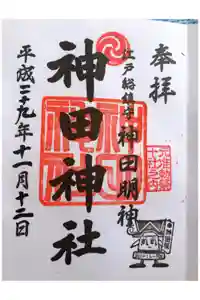 奉拝
江戸総鎮守 神田明神
神田神社
平成二十九年十一月十二日